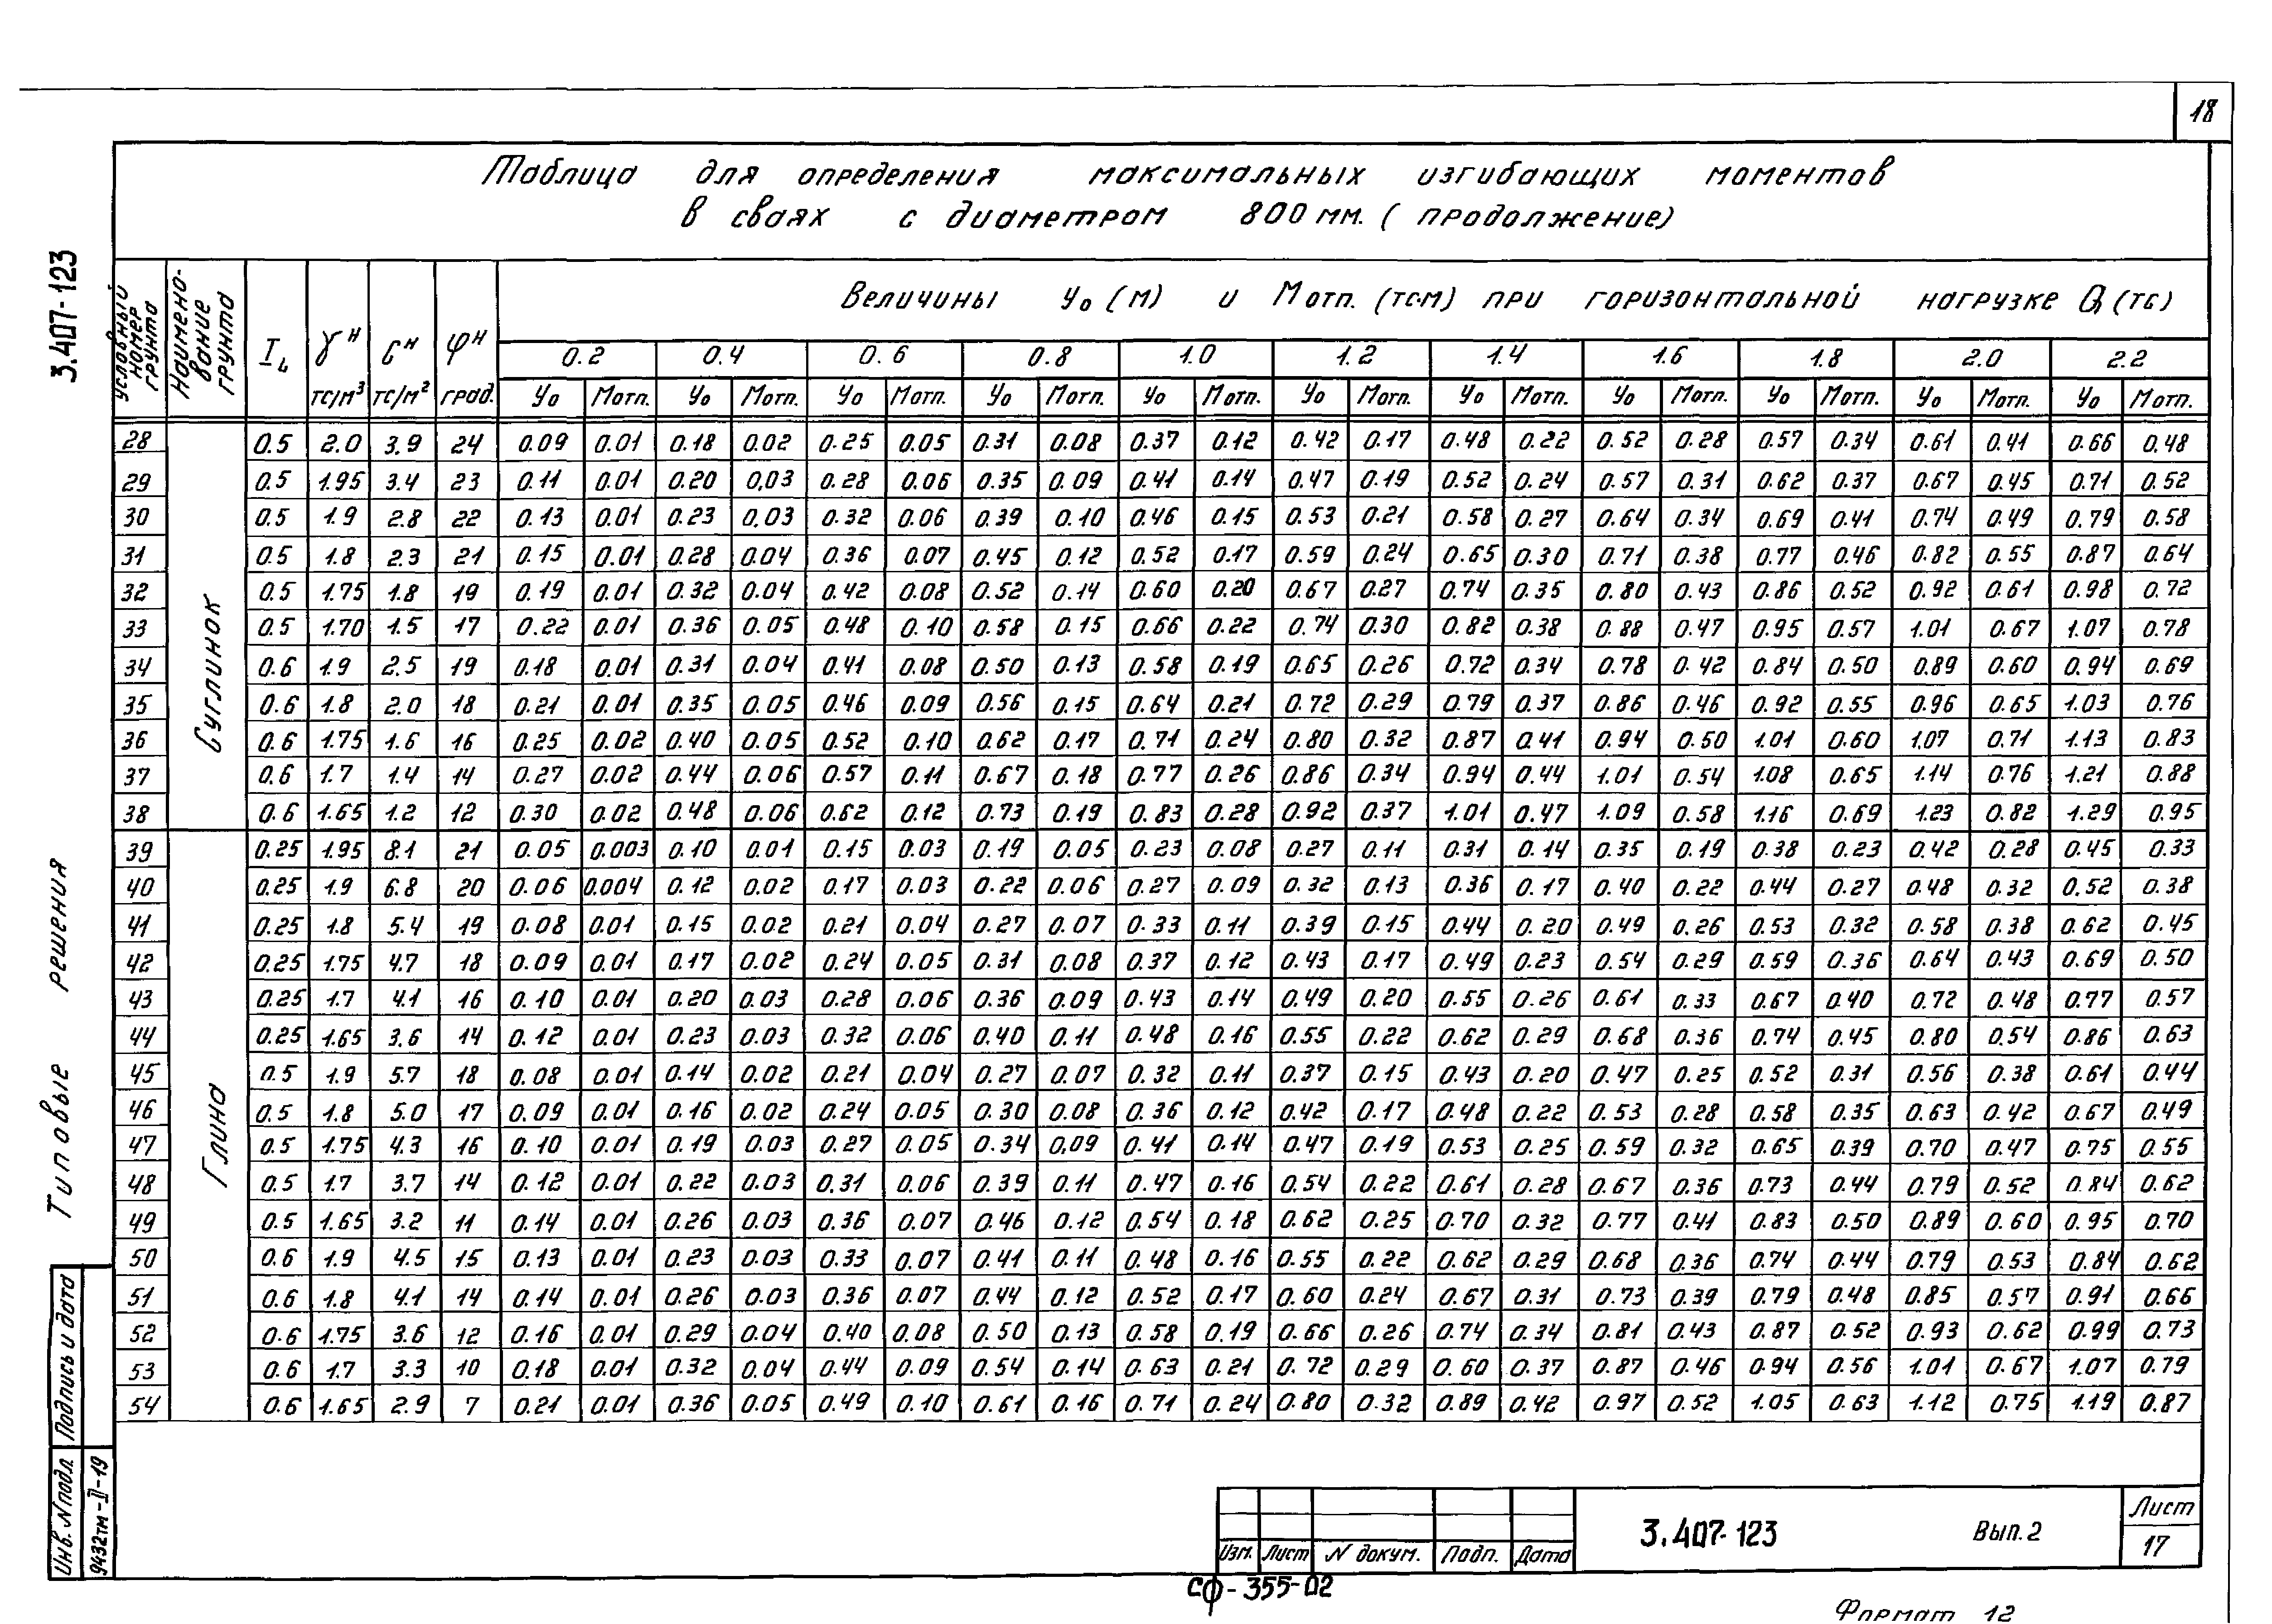 18
Таблица для определения максимальных изгибающих моментов
в сваях с диаметром 800 мм. ( продолжение)
3.407-123
Условный номер грунта
Наимено-
вание
грунта
I L
γ н тс/м³
C н тс/м²
φ н град.
Величины y₀ (м) и М отп. (тс·м) при горизонтальной нагрузке Q (тс)
0.2 0.4 0.6 0.8 1.0 1.2 1.4 1.6 1.8 2.0 2.2
y₀ Мотп. y₀ Мотп. y₀ Мотп. y₀ Мотп. y₀ Мотп. y₀ Мотп. y₀ Мотп. y₀ Мотп. y₀ Мотп. y₀ Мотп. y₀ Мотп.
Суглинок
28 0.5 2.0 3.9 24 0.09 0.01 0.18 0.02 0.25 0.05 0.31 0.08 0.37 0.12 0.42 0.17 0.48 0.22 0.52 0.28 0.57 0.34 0.61 0.41 0.66 0.48
29 0.5 1.95 3.4 23 0.11 0.01 0.20 0,03 0.28 0.06 0.35 0.09 0.41 0.14 0.47 0.19 0.52 0.24 0.57 0.31 0.62 0.37 0.67 0.45 0.71 0.52
30 0.5 1.9 2.8 22 0.13 0.01 0.23 0.03 0.32 0.06 0.39 0.10 0.46 0.15 0.53 0.21 0.58 0.27 0.64 0.34 0.69 0.41 0.74 0.49 0.79 0.58
31 0.5 1.8 2.3 21 0.15 0.01 0.28 0.04 0.36 0.07 0.45 0.12 0.52 0.17 0.59 0.24 0.65 0.30 0.71 0.38 0.77 0.46 0.82 0.55 0.87 0.64
32 0.5 1.75 1.8 19 0.19 0.01 0.32 0.04 0.42 0.08 0.52 0.14 0.60 0.20 0.67 0.27 0.74 0.35 0.80 0.43 0.86 0.52 0.92 0.61 0.98 0.72
33 0.5 1.70 1.5 17 0.22 0.01 0.36 0.05 0.48 0.10 0.58 0.15 0.66 0.22 0.74 0.30 0.82 0.38 0.88 0.47 0.95 0.57 1.01 0.67 1.07 0.78
34 0.6 1.9 2.5 19 0.18 0.01 0.31 0.04 0.41 0.08 0.50 0.13 0.58 0.19 0.65 0.26 0.72 0.34 0.78 0.42 0.84 0.50 0.89 0.60 0.94 0.69
35 0.6 1.8 2.0 18 0.21 0.01 0.35 0.05 0.46 0.09 0.56 0.15 0.64 0.21 0.72 0.29 0.79 0.37 0.86 0.46 0.92 0.55 0.96 0.65 1.03 0.76
36 0.6 1.75 1.6 16 0.25 0.02 0.40 0.05 0.52 0.10 0.62 0.17 0.71 0.24 0.80 0.32 0.87 0.41 0.94 0.50 1.01 0.60 1.07 0.71 1.13 0.83
37 0.6 1.7 1.4 14 0.27 0.02 0.44 0.06 0.57 0.11 0.67 0.18 0.77 0.26 0.86 0.34 0.94 0.44 1.01 0.54 1.08 0.65 1.14 0.76 1.21 0.88
38 0.6 1.65 1.2 12 0.30 0.02 0.48 0.06 0.62 0.12 0.73 0.19 0.83 0.28 0.92 0.37 1.01 0.47 1.09 0.58 1.16 0.69 1.23 0.82 1.29 0.95
Глина
39 0.25 1.95 8.1 21 0.05 0.003 0.10 0.01 0.15 0.03 0.19 0.05 0.23 0.08 0.27 0.11 0.31 0.14 0.35 0.19 0.38 0.23 0.42 0.28 0.45 0.33
40 0.25 1.9 6.8 20 0.06 0.004 0.12 0.02 0.17 0.03 0.22 0.06 0.27 0.09 0.32 0.13 0.36 0.17 0.40 0.22 0.44 0.27 0.48 0.32 0.52 0.38
41 0.25 1.8 5.4 19 0.08 0.01 0.15 0.02 0.21 0.04 0.27 0.07 0.33 0.11 0.39 0.15 0.44 0.20 0.49 0.26 0.53 0.32 0.58 0.38 0.62 0.45
42 0.25 1.75 4.7 18 0.09 0.01 0.17 0.02 0.24 0.05 0.31 0.08 0.37 0.12 0.43 0.17 0.49 0.23 0.54 0.29 0.59 0.36 0.64 0.43 0.69 0.50
43 0.25 1.7 4.1 16 0.10 0.01 0.20 0.03 0.28 0.06 0.36 0.09 0.43 0.14 0.49 0.20 0.55 0.26 0.61 0.33 0.67 0.40 0.72 0.48 0.77 0.57
44 0.25 1.65 3.6 14 0.12 0.01 0.23 0.03 0.32 0.06 0.40 0.11 0.48 0.16 0.55 0.22 0.62 0.29 0.68 0.36 0.74 0.45 0.80 0.54 0.86 0.63
45 0.5 1.9 5.7 18 0.08 0.01 0.14 0.02 0.21 0.04 0.27 0.07 0.32 0.11 0.37 0.15 0.43 0.20 0.47 0.25 0.52 0.31 0.56 0.38 0.61 0.44
46 0.5 1.8 5.0 17 0.09 0.01 0.16 0.02 0.24 0.05 0.30 0.08 0.36 0.12 0.42 0.17 0.48 0.22 0.53 0.28 0.58 0.35 0.63 0.42 0.67 0.49
47 0.5 1.75 4.3 16 0.10 0.01 0.19 0.03 0.27 0.05 0.34 0,09 0.41 0.14 0.47 0.19 0.53 0.25 0.59 0.32 0.65 0.39 0.70 0.47 0.75 0.55
48 0.5 1.7 3.7 14 0.12 0.01 0.22 0.03 0.31 0.06 0.39 0.11 0.47 0.16 0.54 0.22 0.61 0.28 0.67 0.36 0.73 0.44 0.79 0.52 0.84 0.62
49 0.5 1.65 3.2 11 0.14 0.01 0.26 0.03 0.36 0.07 0.46 0.12 0.54 0.18 0.62 0.25 0.70 0.32 0.77 0.41 0.83 0.50 0.89 0.60 0.95 0.70
50 0.6 1.9 4.5 15 0.13 0.01 0.23 0.03 0.33 0.07 0.41 0.11 0.48 0.16 0.55 0.22 0.62 0.29 0.68 0.36 0.74 0.44 0.79 0.53 0.84 0.62
51 0.6 1.8 4.1 14 0.14 0.01 0.26 0.03 0.36 0.07 0.44 0.12 0.52 0.17 0.60 0.24 0.67 0.31 0.73 0.39 0.79 0.48 0.85 0.57 0.91 0.66
52 0.6 1.75 3.6 12 0.16 0.01 0.29 0.04 0.40 0.08 0.50 0.13 0.58 0.19 0.66 0.26 0.74 0.34 0.81 0.43 0.87 0.52 0.93 0.62 0.99 0.73
53 0.6 1.7 3.3 10 0.18 0.01 0.32 0.04 0.44 0.09 0.54 0.14 0.63 0.21 0.72 0.29 0.60 0.37 0.87 0.46 0.94 0.56 1.01 0.67 1.07 0.79
54 0.6 1.65 2.9 7 0.21 0.01 0.36 0.05 0.49 0.10 0.61 0.16 0.71 0.24 0.80 0.32 0.89 0.42 0.97 0.52 1.05 0.63 1.12 0.75 1.19 0.87
Типовые решения
Инв. N подл. Подпись и дата
9432тм-II-19
Изм. Лист N докум. Подп. Дата
3.407-123 Вып. 2
Лист
17
сф-355-02
Формат 12